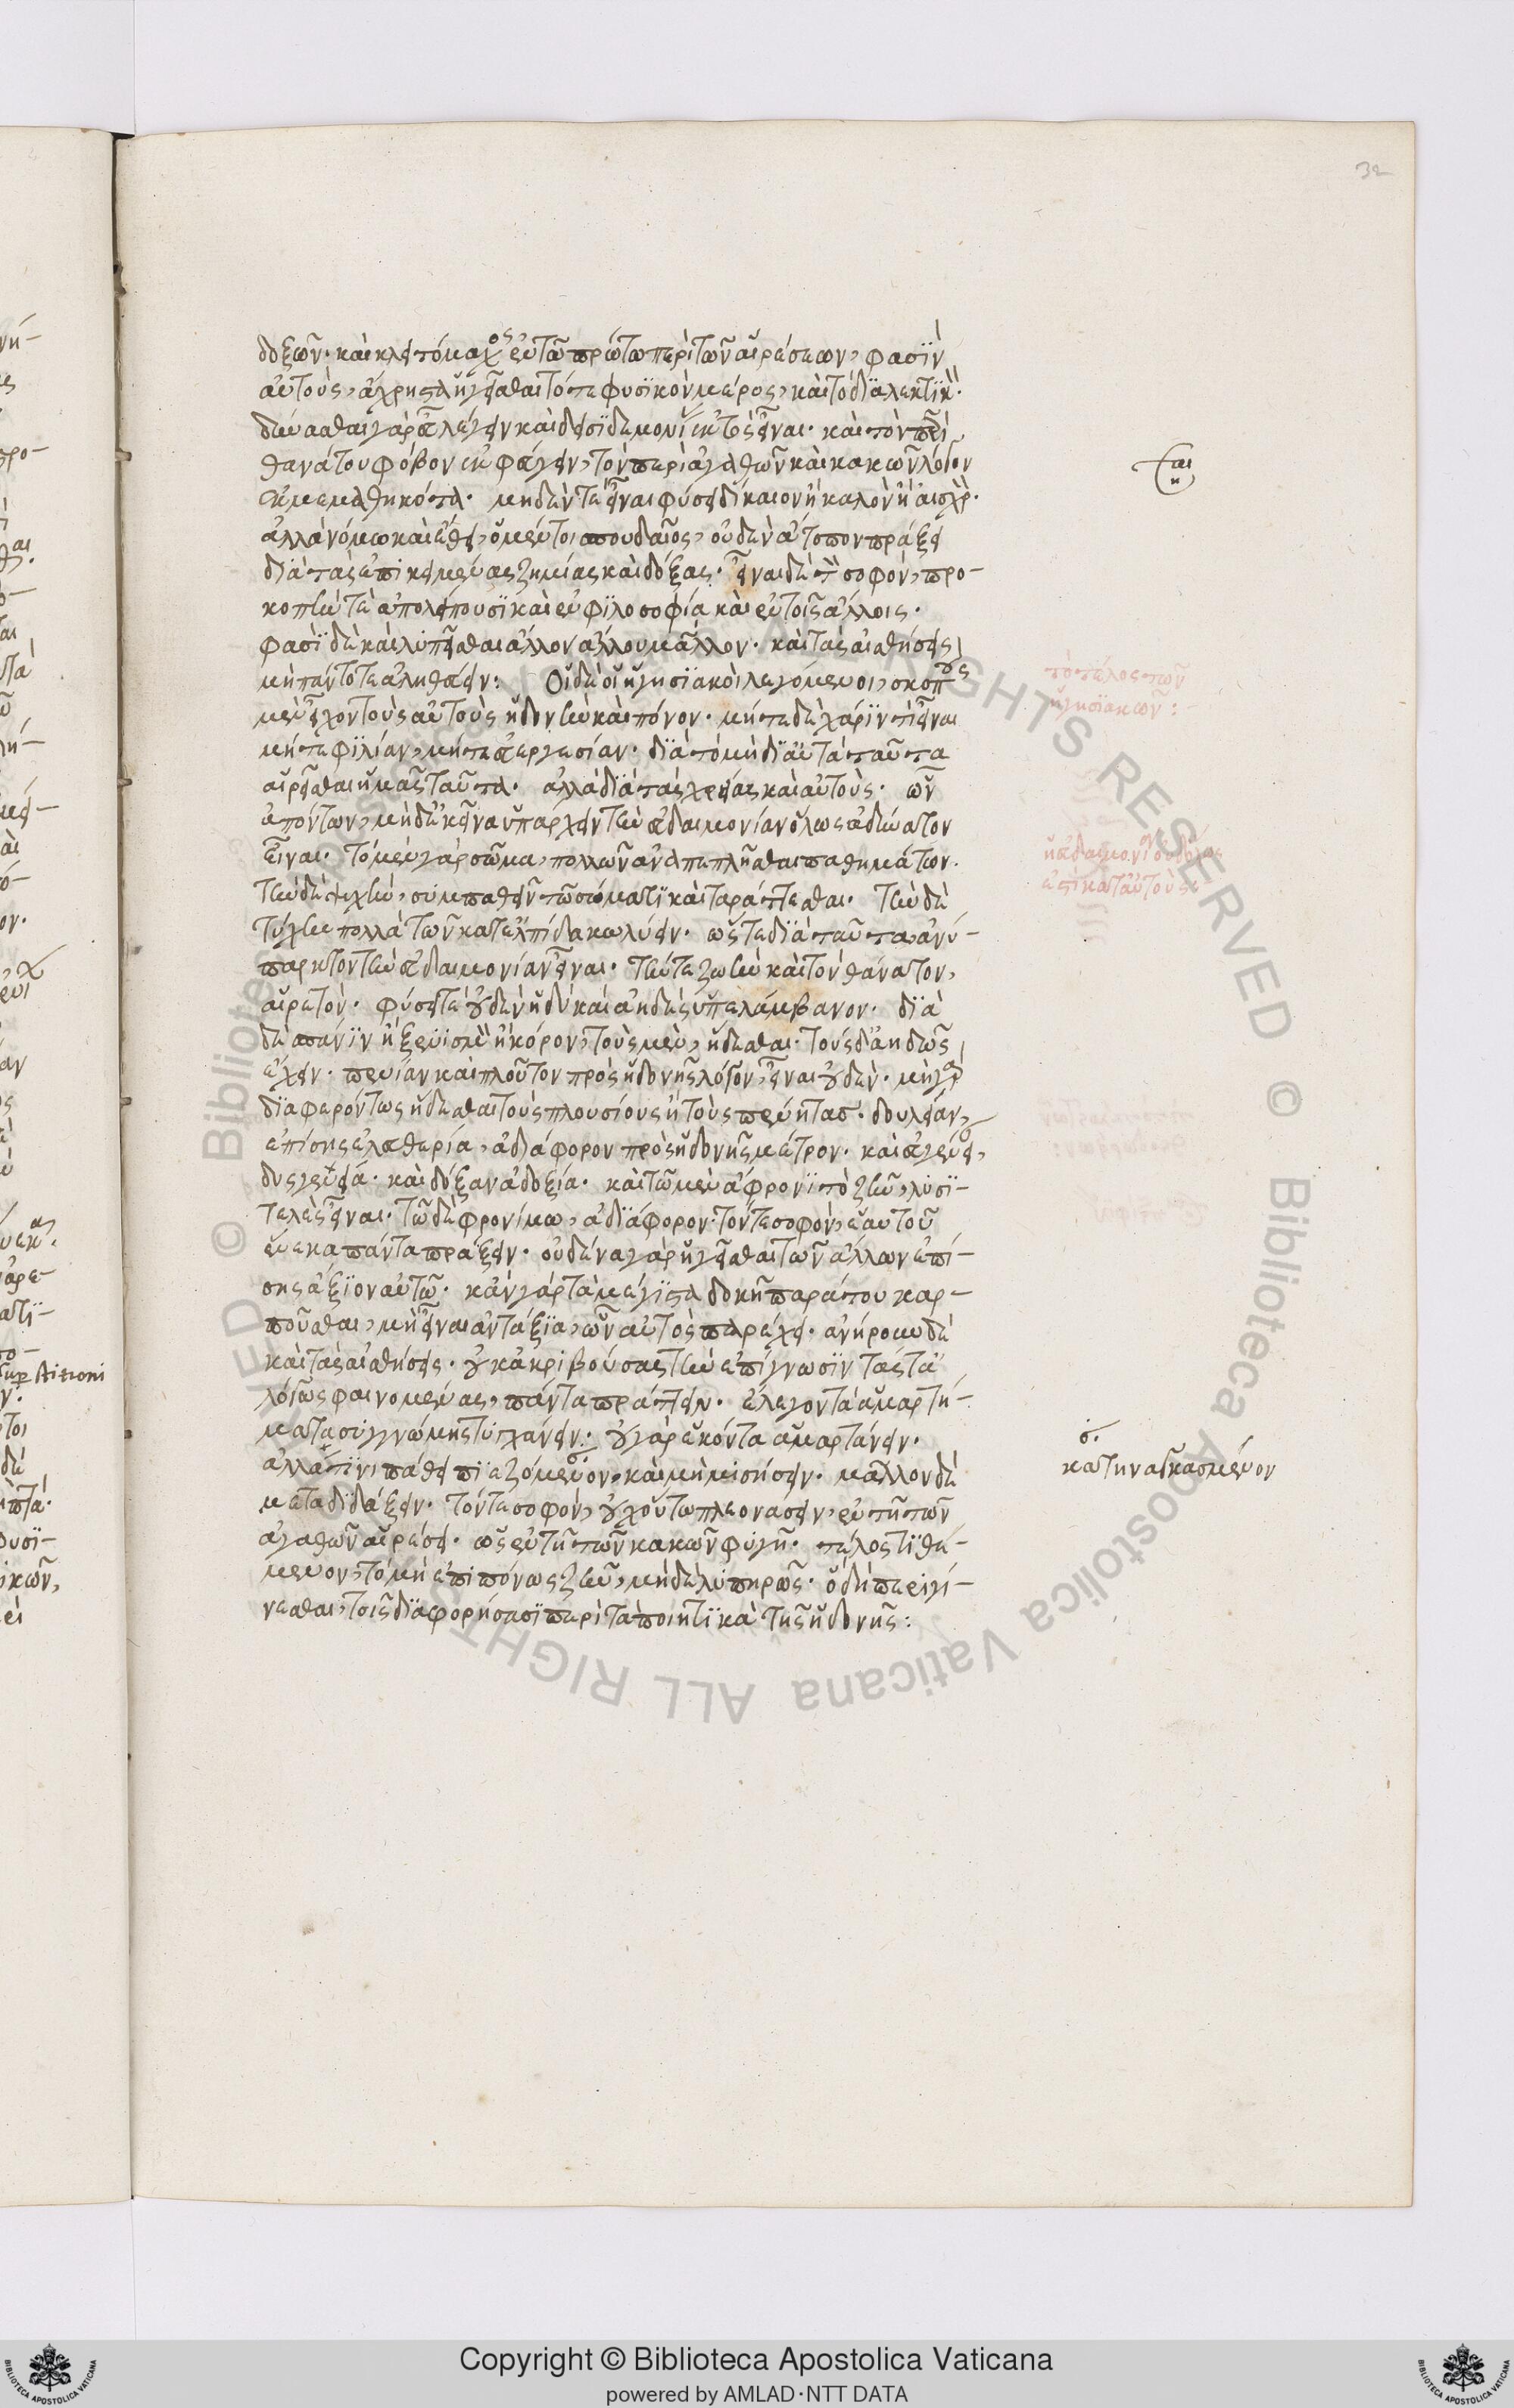 32
δοξῶν· καὶ κλειτόμαχος ἐν τῶ πρώτω περὶ τῶν αἱρέσεων, φασὶν
αὐτοὺς, ἄχρηστα ἡγεῖσθαι τό τε φυσικὸν μέρος, καὶ τὸ διαλεκτικὸν·
δύνασθαι γὰρ εὖ λέγειν καὶ δεισιδαιμονίας ἐκτὸς εἶναι· καὶ τὸν περὶ
θανάτου φόβον ἐκφεύγειν, τὸν περὶ ἀγαθῶν καὶ κακῶν λόγον
ἐκμεμαθηκότα· μηδέν τε εἶναι φύσει δίκαιον ἢ καλὸν ἢ αἰσχρὸν·
ἀλλὰ νόμω καὶ ἔθει, ὁ μέντοι σπουδαῖος, οὐδὲν ἄτοπον πράξει
διὰ τὰς ἐπικειμένας ζημίας καὶ δόξας· εἶναι δὲ τὸν σοφόν, προ-
κοπήν τε ἀπολείπουσι καὶ ἐν φιλοσοφία καὶ ἐν τοῖς ἄλλοις·
φασὶ δὲ καὶ λυπεῖσθαι ἄλλον ἄλλου μᾶλλον· καὶ τὰς αἰσθήσεις
μὴ πάντοτε ἀληθεύειν: Οἱ δὲ οἱ ἡγησιακοὶ λεγόμενοι, σκοποὺς
μὲν εἶχον τοὺς αὐτοὺς ἡδονὴν καὶ πόνον· μήτε δὲ χάριν τὶ εἶναι
μήτε φιλίαν, μήτε εὐεργεσίαν· διὰ τὸ μὴ δι' αὐτὰ ταῦτα
αἱρεῖσθαι ἡμᾶς ταῦτα· ἀλλὰ διὰ τὰς χρείας καὶ αὐτοὺς· ὧν
ἀπόντων, μηδ' ἐκεῖνα ὑπάρχειν τὴν εὐδαιμονίαν ὅλως ἀδύνατον
εἶναι· τὸ μὲν γὰρ σῶμα, πολλῶν ἀναπεπλῆσθαι παθημάτων·
τὴν δὲ ψυχὴν, συμπαθεῖν τῶ σώματι καὶ ταράττεσθαι· τὴν δὲ
τύχην πολλὰ τῶν κατ' ἐλπίδα κωλύειν· ὥστε διὰ ταῦτα ἀνύ-
παρκτον τὴν εὐδαιμονίαν εἶναι· τήν τε ζωὴν καὶ τὸν θάνατον,
αἱρετὸν· φύσει τε οὐδὲν ἡδὺ καὶ ἀηδὲς ὑπελάμβανον· διὰ
δὲ σπάνιν ἢ ξενισμὸν ἢ κόρον, τοὺς μὲν, ἥδεσθαι· τοὺς δ' ἀηδῶς
ἔχειν· πενίαν καὶ πλοῦτον πρὸς ἡδονῆς λόγον, εἶναι οὐδὲν· μὴ γὰρ
διαφερόντως ἥδεσθαι τοὺς πλουσίους ἢ τοὺς πένητας· δουλείαν,
ἐπίσης ἐλευθερία, ἀδιάφορον πρὸς ἡδονῆς μέτρον· καὶ εὐγένειαν,
δυσγενεία· καὶ δόξαν ἀδοξία· καὶ τῶ μὲν ἄφρονι τὸ ζῆν, λυσι-
τελὲς εἶναι· τῶ δὲ φρονίμω, ἀδιάφορον· τόν τε σοφὸν, ἑαυτοῦ
ἕνεκα πάντα πράξειν· οὐδένα γὰρ ἡγεῖσθαι τῶν ἄλλων ἐπί-
σης ἄξιον αὐτῶ· κἂν γὰρ τὰ μέγιστα δοκῆ παρά του καρ-
ποῦσθαι, μὴ εἶναι ἀντάξια, ὧν αὐτὸς παρέχει· ἀνήρουν δὲ
καὶ τὰς αἰσθήσεις· οὐκ ἀκριβούσας τὴν ἐπίγνωσιν τάς τε εὐ
λόγως φαινομένας, πάντα πράττειν· ἔλεγον τὰ ἁμαρτή-
ματα συγγνώμης τυγχάνειν· οὐ γὰρ ἑκόντα ἁμαρτάνειν·
ἀλλά τινι πάθει πιεζόμενον, καὶ μὴ μισήσειν· μᾶλλον δὲ
μεταδιδάξειν· τόν τε σοφόν, οὐχ οὕτω πλεονάσειν, ἐν τῆ τῶν
ἀγαθῶν αἱρέσει· ὡς ἐν τῆ τῶν κακῶν φυγῆ· τέλος τιθέ-
μενον, τὸ μὴ ἐπιπόνως ζῆν, μηδὲ λυπηρῶς· ὃ δὴ περιγί-
νεσθαι, τοῖς διαφορήσασι περὶ τὰ ποιητικὰ τῆς ἡδονῆς:
αι
η
τὸ τέλος τῶν
ἡγησιακῶν:
κατηναγκασμένον
Copyright © Biblioteca Apostolica Vaticana
powered by AMLAD·NTT DATA
© Biblioteca Apostolica Vaticana ALL RIGHTS RESERVED